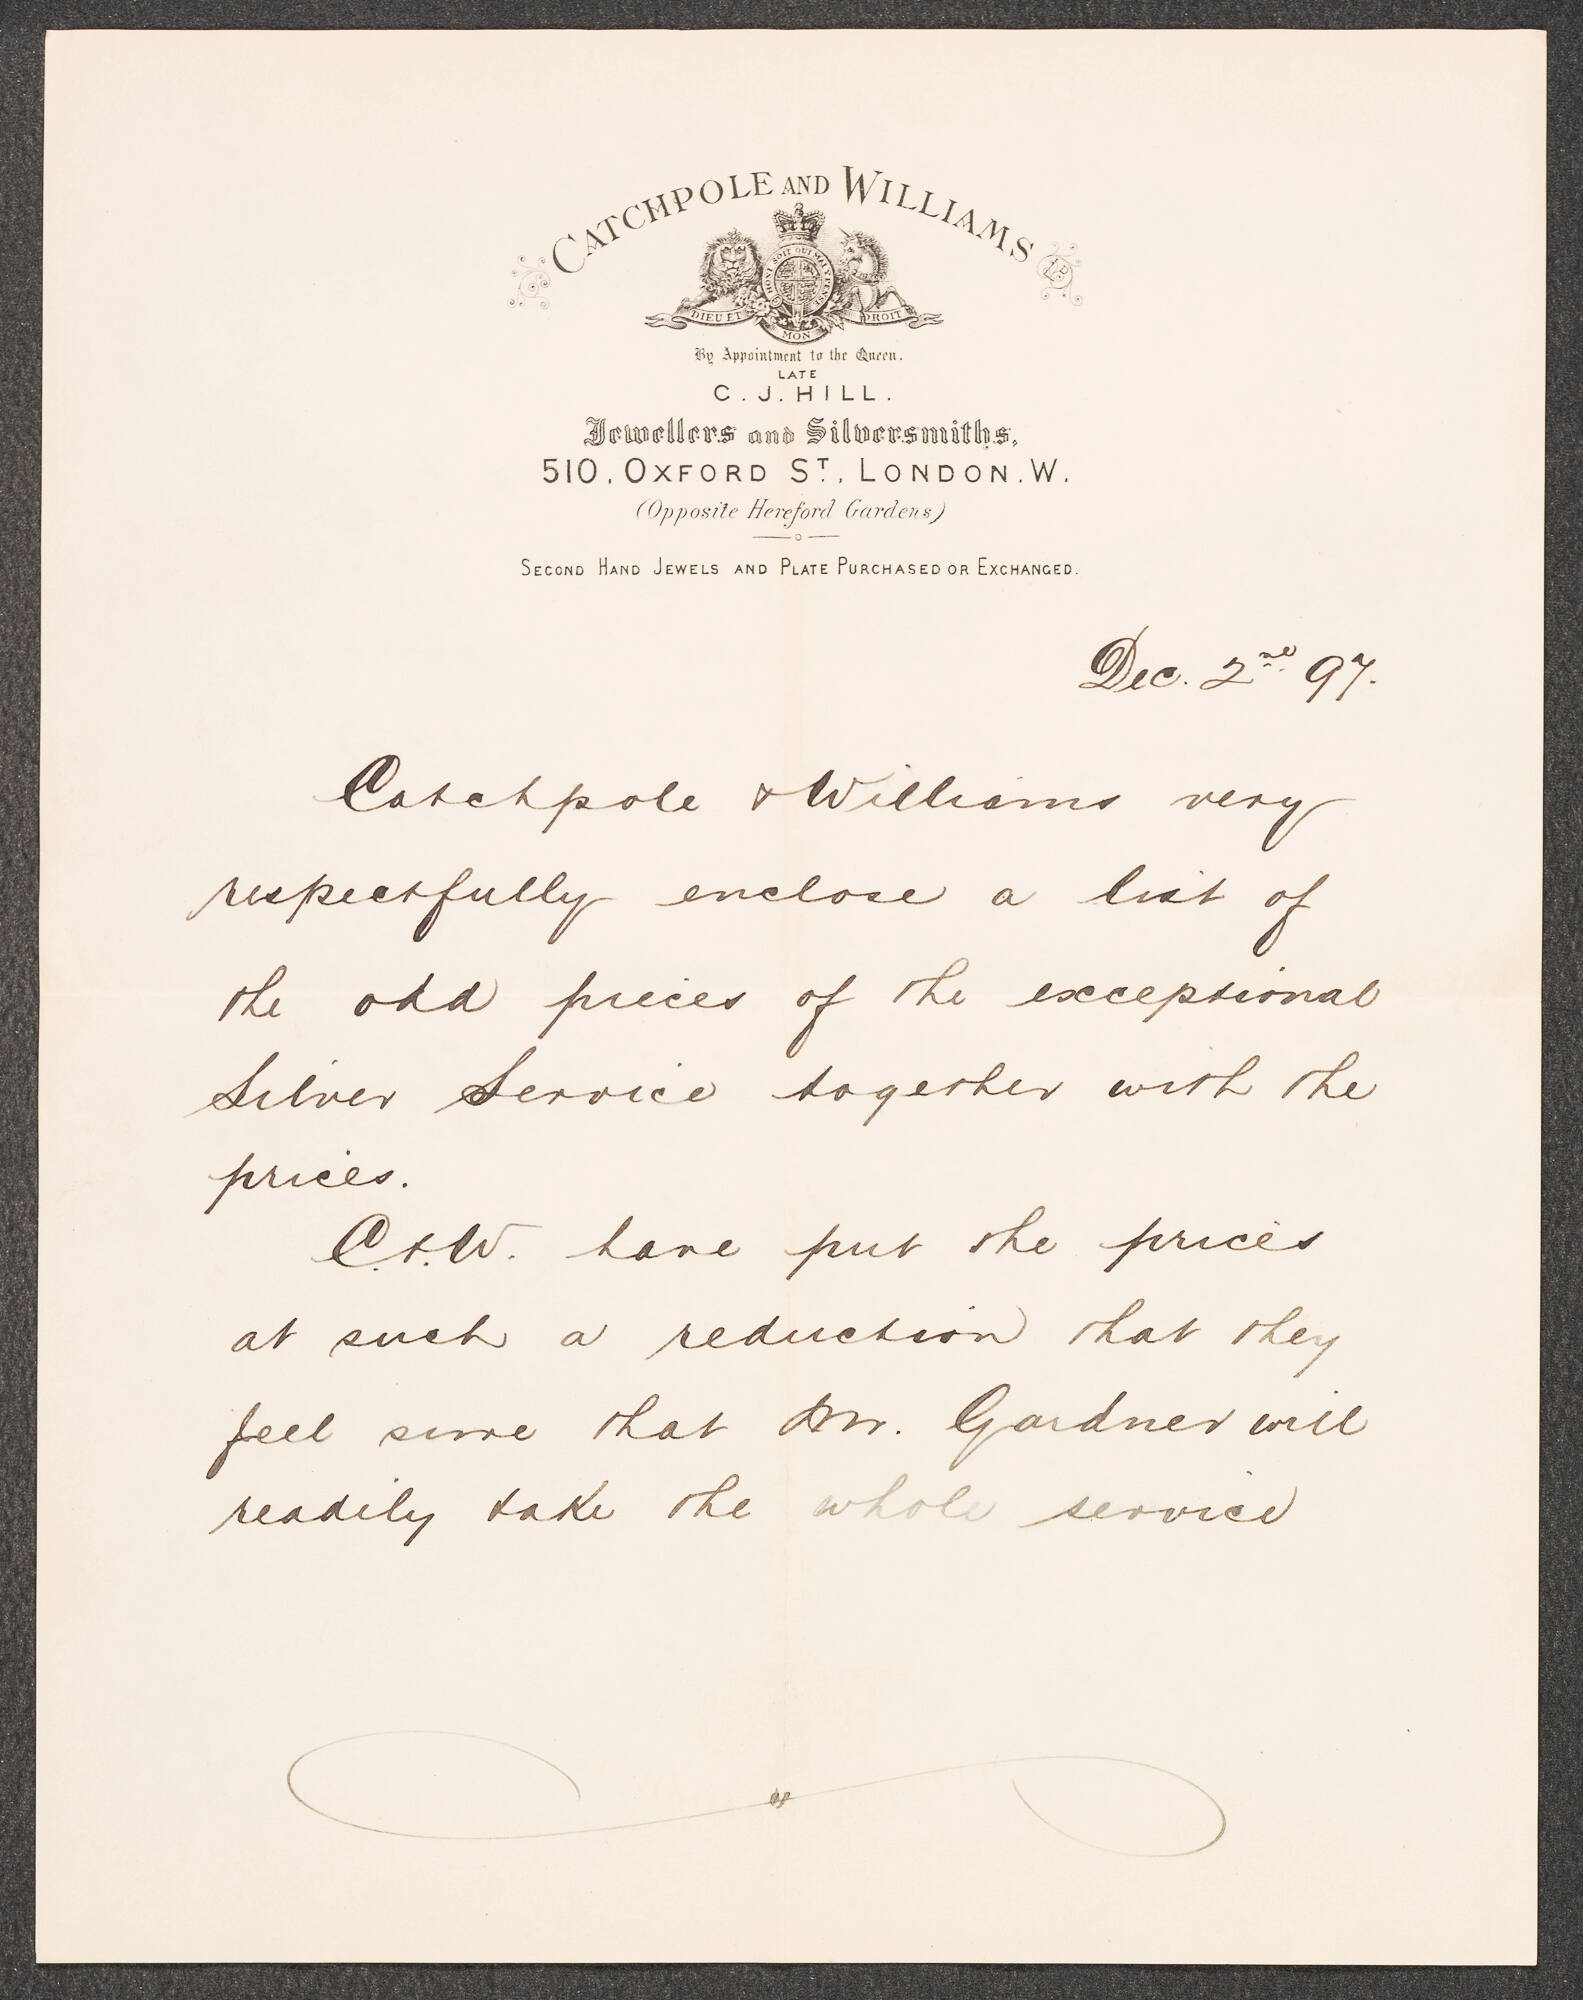 CATCHPOLE AND WILLIAMS LD
HONI SOIT QUI MAL Y PENSE
DIEU ET MON DROIT
By Appointment to the Queen.
LATE
C. J. HILL.
Jewellers and Silversmiths,
510, OXFORD ST., LONDON. W.
(Opposite Hereford Gardens)
SECOND HAND JEWELS AND PLATE PURCHASED OR EXCHANGED.
Dec. 2nd 97.
Catchpole & Williams very
respectfully enclose a list of
the odd pieces of the exceptional
Silver Service together with the
prices.
C. & W. have put the prices
at such a reduction that they
feel sure that Mr. Gardner will
readily take the whole service